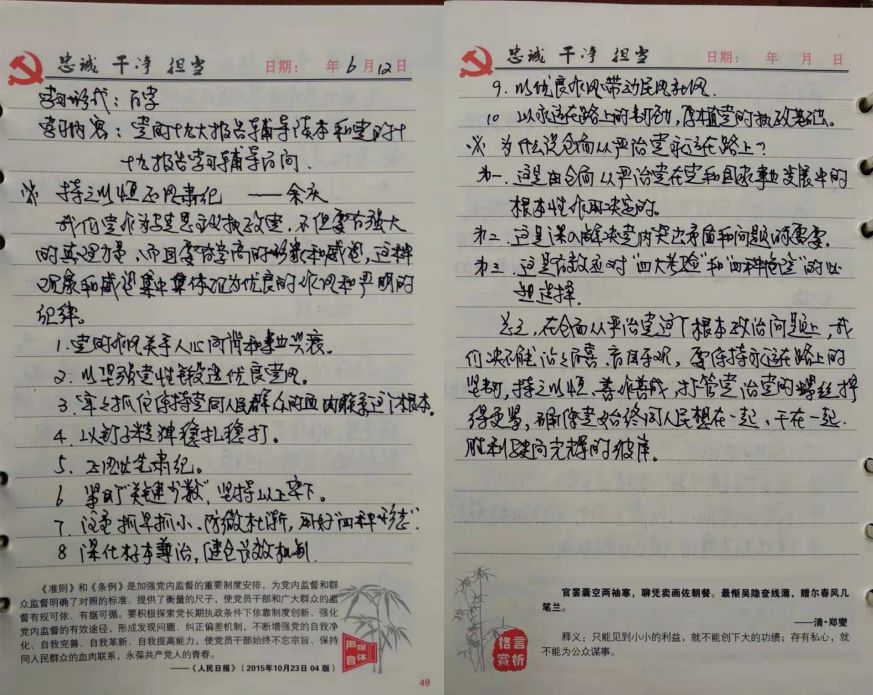 忠诚 干净 担当
日期: 年 6 月 12 日
学习形式：自学
学习内容：党的十九大报告辅导读本和党的十
十九报告学习辅导百问.
※ 持之以恒正风肃纪 ——余庆
我们党作为马克思主义执政党，不但要有强大
的真理力量，而且要有崇高的形象和威望，这种
形象和威望集中集体现为优良的作风和严明的
纪律。
1.党的作风关乎人心向背和事业兴衰。
2.以坚强党性锻造优良党风。
3.牢牢抓住保持党同人民群众的血肉联系这个根本.
4.以钉子精神稳扎稳打.
5.正风必先肃纪。
6 紧盯"关键少数",坚持以上率下。
7.注重抓早抓小、防微杜渐，用好"四种形态".
8 深化标本兼治，健全长效机制.
《准则》和《条例》是加强党内监督的重要制度安排，为党内监督和群
众监督明确了对照的标准、提供了衡量的尺子，使党员干部和广大群众的监
督有规可依、有据可循。要积极探索党长期执政条件下依靠制度创新、强化
党内监督的有效途径，形成发现问题、纠正偏差机制，不断增强党的自我净
化、自我完善、自我革新、自我提高能力，使党员干部始终不忘宗旨、保持
同人民群众的血肉联系，永葆共产党人的青春。
——《人民日报》(2015年10月23日 04 版)
媒体声音
49
忠诚 干净 担当
日期: 年 月 日
9.以优良作风带动民风社风.
10 以永远在路上的韧劲,厚植党的执政基础。
※ 为什么说全面从严治党永远在路上?
为一.这是由全面从严治党在党和国家事业发展中的
根本性作用决定的。
为二.这是深入解决党内突出矛盾和问题的需要.
为三.这是有效应对"四大考验"和"四种危险"的必
然选择.
总之,在全面从严治党这个根本政治问题上,我
们决不能沾沾自喜、盲目乐观，要保持永远在路上的
坚韧,持之以恒、善作善成,把管党治党的螺丝拧
得更紧,确保党始终同人民想在一起、干在一起.
胜利驶向光辉的彼岸。
官罢囊空两袖寒，聊凭卖画佐朝餐。最惭吴隐奁钱薄，赠尔春风几
笔兰。
——清·郑燮
释义：只能见到小小的利益，就不能创下大的功绩；存有私心，就
不能为公众谋事。
格言赏析